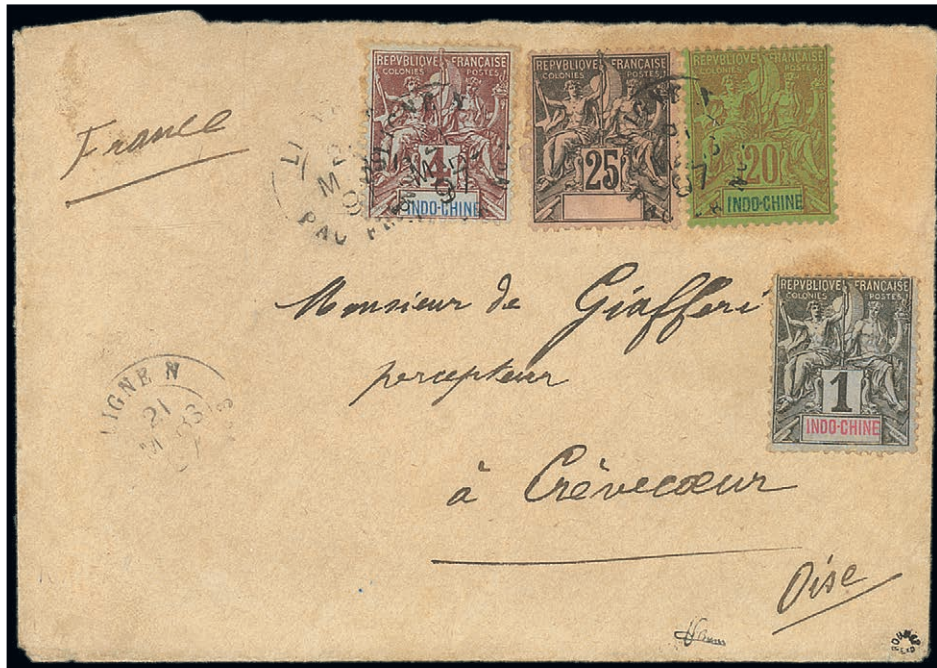 REPVBLIQUE FRANÇAISE
COLONIES POSTES
4
INDO-CHINE
REPVBLIQUE FRANÇAISE
COLONIES POSTES
25
REPVBLIQUE FRANÇAISE
COLONIES POSTES
20
INDO-CHINE
France
LIGNE N
97
PAQ
REPVBLIQUE FRANÇAISE
COLONIES POSTES
1
INDO-CHINE
Monsieur de Giafferi
percepteur
à Crèvecœur
Oise
LIGNE N
21